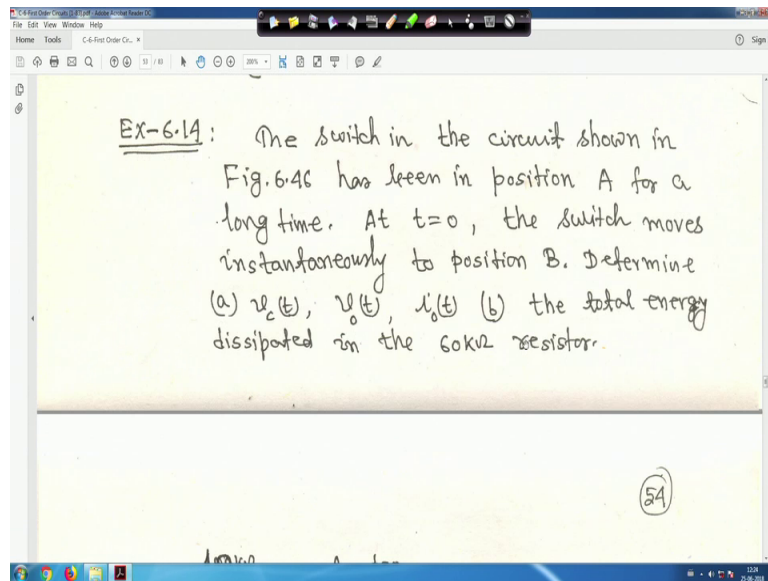 C-6-First Order Circuits (1-83).pdf - Adobe Acrobat Reader DC
File Edit View Window Help
Home Tools C-6-First Order Cir... × Sign
53 / 83 200%
Ex-6.14: The switch in the circuit shown in
Fig. 6.46 has been in position A for a
long time. At t=0, the switch moves
instantaneously to position B. Determine
(a) v_c(t), v_o(t), i_o(t) (b) the total energy
dissipated in the 60KΩ resistor.
54
12:24
25-06-2018